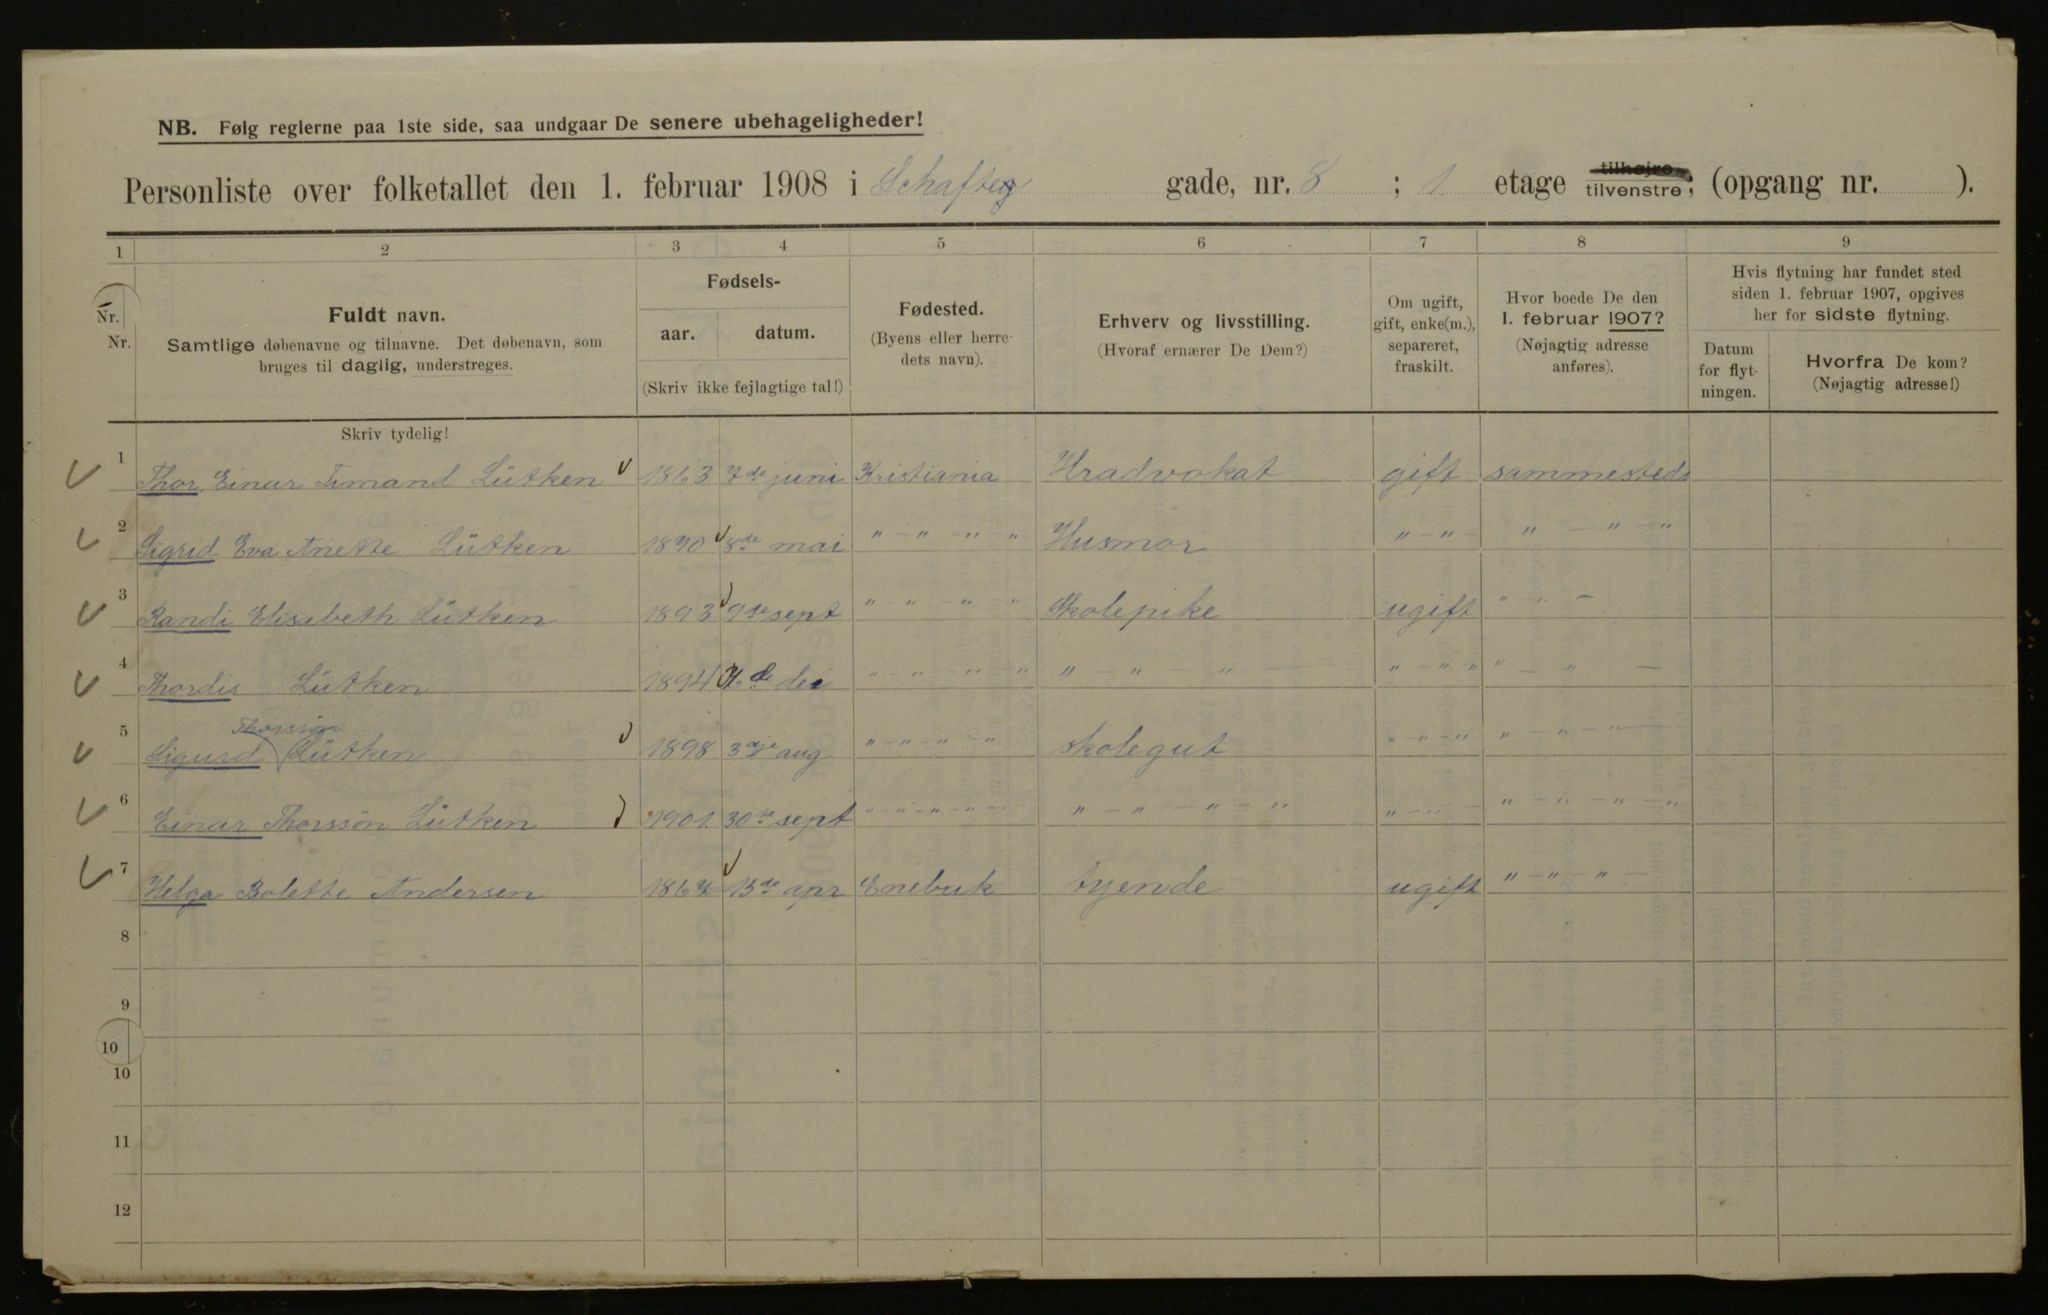 NB. Følg reglerne paa 1ste side, saa undgaar De senere ubehageligheder!
Personliste over folketallet den 1. februar 1908 i Schafteg gade, nr. 8 ; 1 etage tilhøjre tilvenstre; (opgang nr. ).
1 2 3 4 5 6 7 8 9
Nr. Nr.
Fuldt navn.
Samtlige døbenavne og tilnavne. Det døbenavn, som
bruges til daglig, understreges.
Fødsels-
aar. datum.
(Skriv ikke fejlagtige tal!)
Fødested.
(Byens eller herre-
dets navn).
Erhverv og livsstilling.
(Hvoraf ernærer De Dem?)
Om ugift,
gift, enke(m.),
separeret,
fraskilt.
Hvor boede De den
1. februar 1907?
(Nøjagtig adresse
anføres).
Hvis flytning har fundet sted
siden 1. februar 1907, opgives
her for sidste flytning.
Datum
for flyt-
ningen.
Hvorfra De kom?
(Nøjagtig adresse!)
Skriv tydelig!
1 Thor Einar Timand Lütken 1863 7de juni Kristiania Hradvokat gift sammesteds
2 Sigrid Eva Anette Lütken 8de mai " - " - " - " Husmor " - " " - " - "
3 Randi Elisabeth Lütken 1893 9de sept " - " - " - " Skolepike ugift " - " -
4 Thordis Lütken 1894 de " - " - " - " " - " - " " - " - " " - " -
Thorssön
5 Sigurd Lütken 1898 3die aug " - " - " - " skolegut " - " - " " - " - " -
6 Einar Thorssön Lütken 1901 30te sept " - " - " - " - " " - " - " - " " - " - " - " - " - "
7 Helga Bolette Andersen 15de apr Enebak tyende ugift " - " - " -
8
9
10
10
11
12